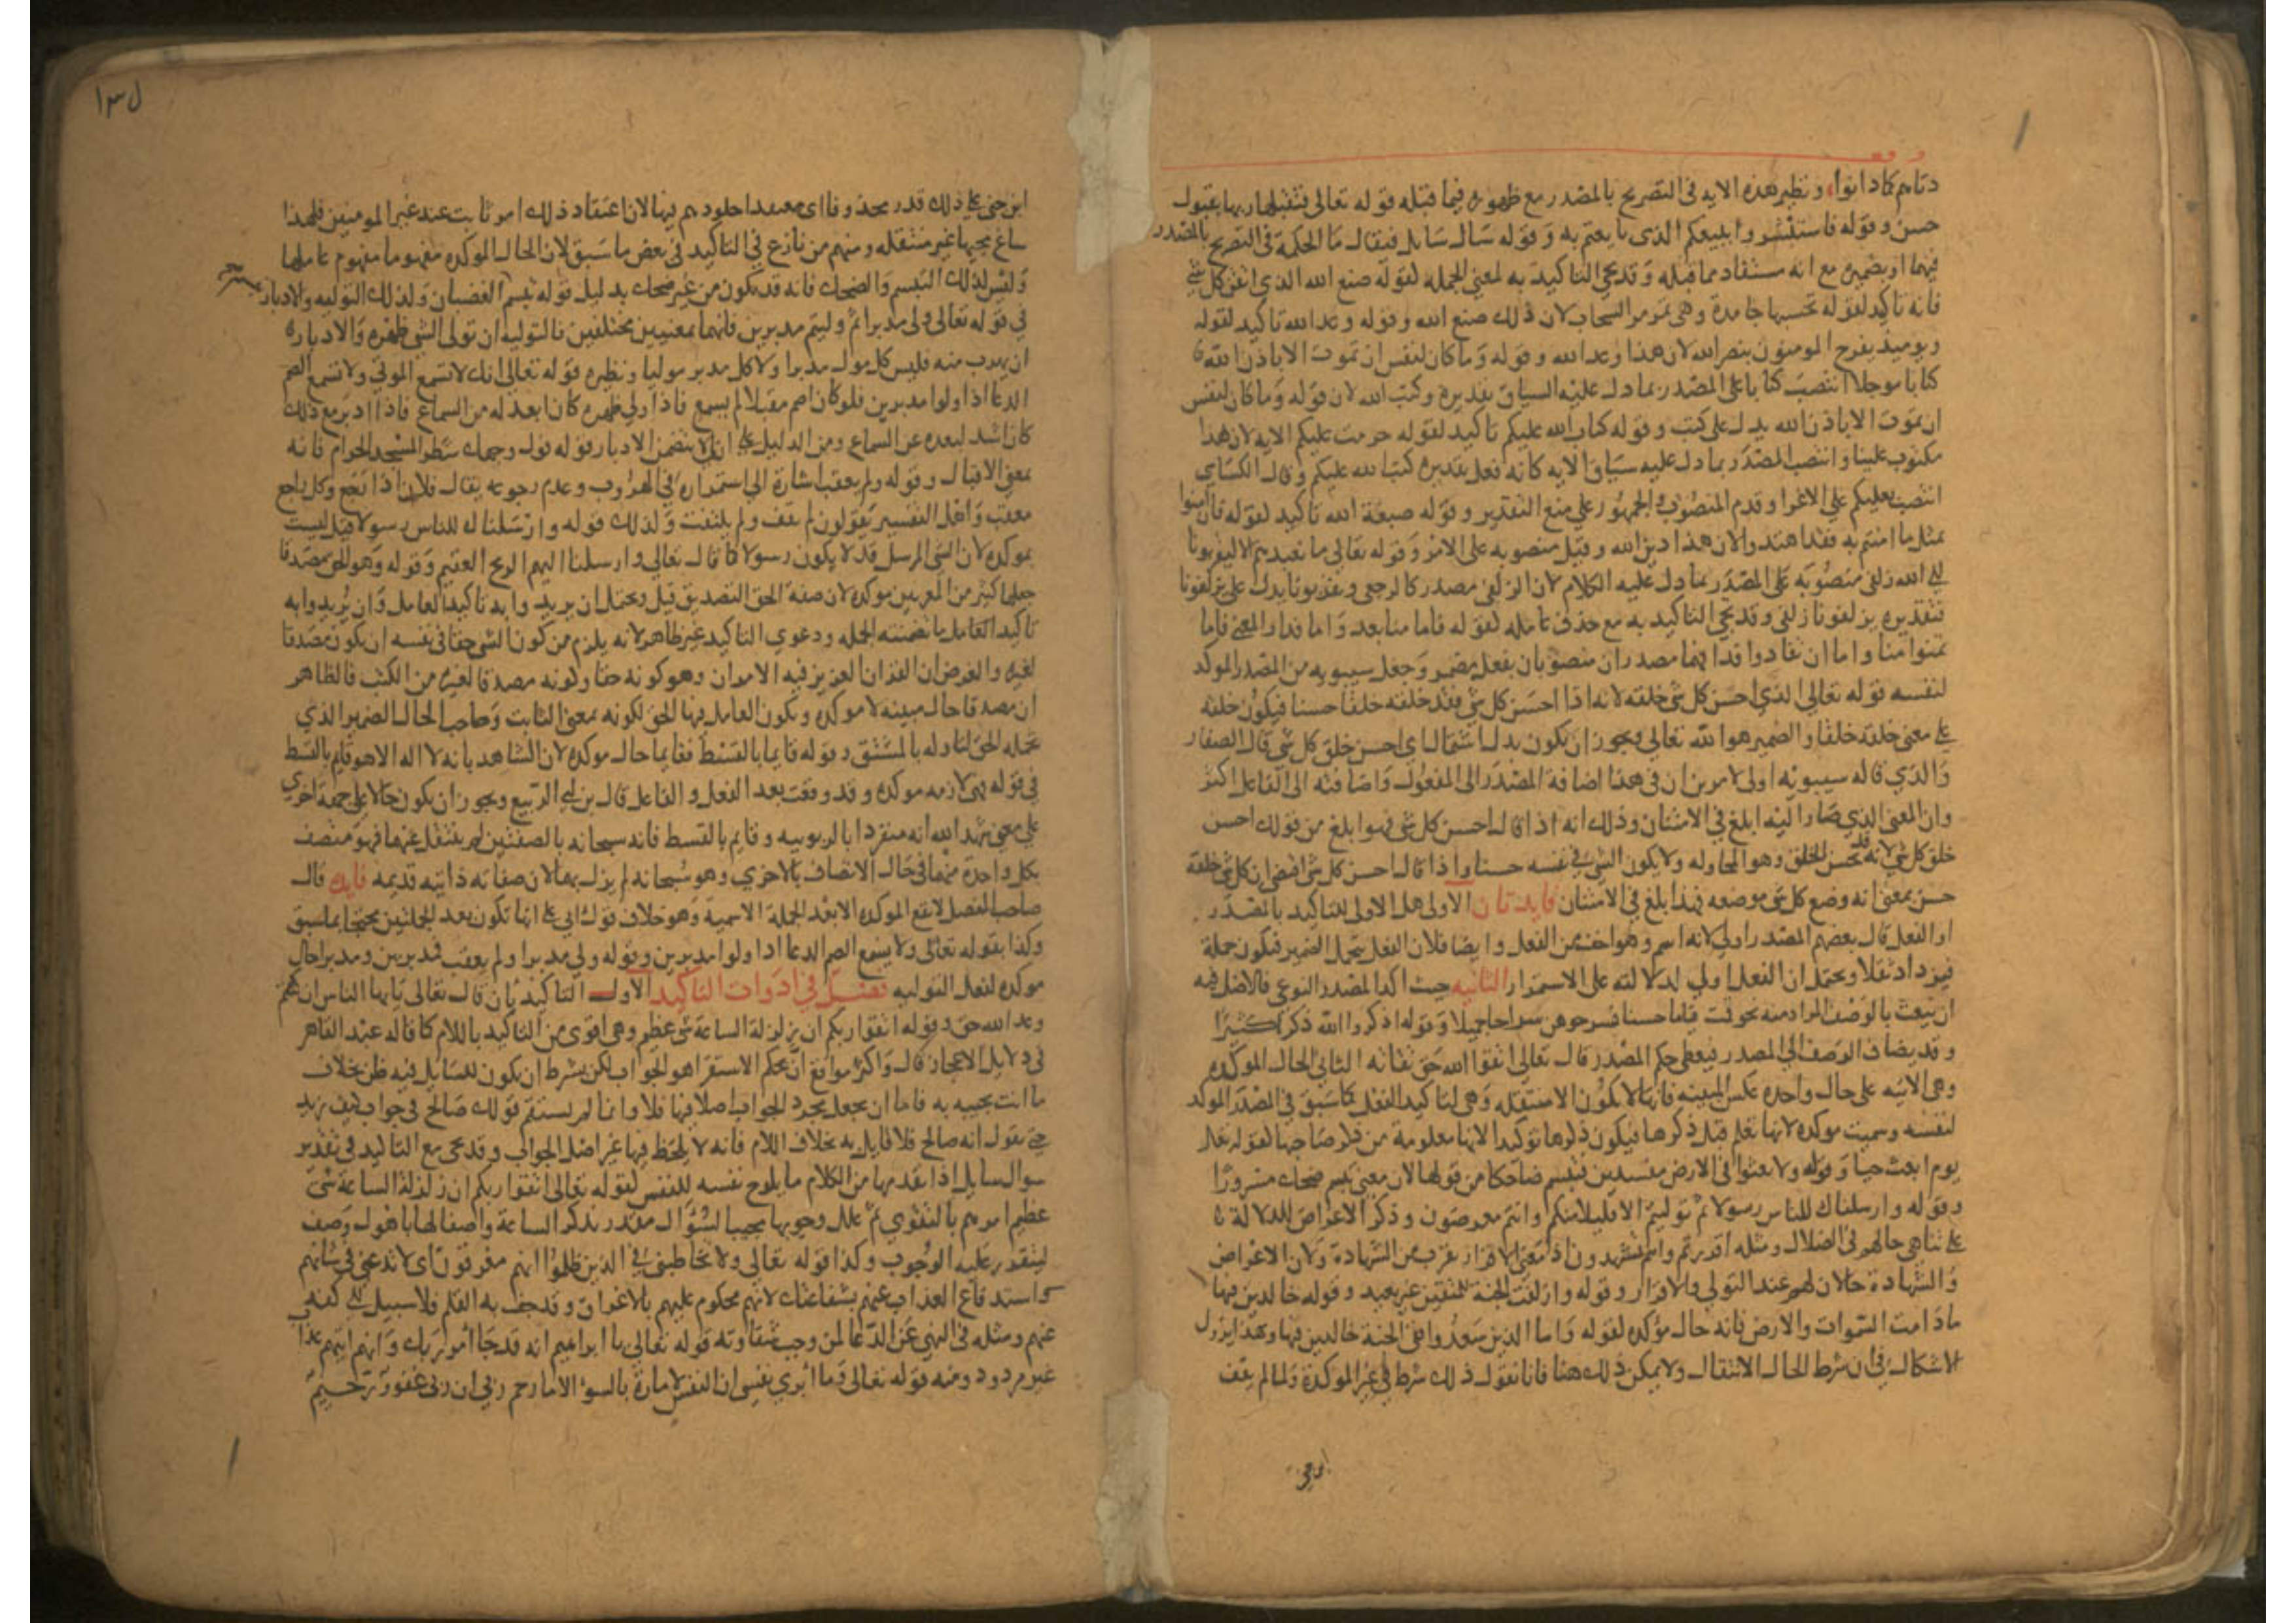 دناهم كما دانوا ونظير هذه الاية في التصريح بالمصدر مع ظهوره فيما قبله قوله تعالى فتقبلها ربها بقبول
حسن وقوله فاستبشروا ببيعكم الذي بايعتم به وقوله سال سايل فيقال ما الحكمة في التصريح بالمصدر
فيهما او بضميره مع انه مستفاد مما قبله وقد يجي التاكيد به لمعنى الجمله كقوله صنع الله الذي اتقن كل شي
فانه تاكيد لقوله تحسبها جامدة وهي تمر مر السحاب لان ذلك صنع الله وقوله وعد الله تاكيد لقوله
ويوميذ يفرح المومنون بنصر الله لان هذا وعد الله وقوله وما كان لنفس ان تموت الا باذن الله
كتابا موجلا انتصب كتابا على المصدر بما دل عليه السياق تقديره وكتب الله لان قوله وما كان لنفس
ان تموت الا باذن الله يدل على كتب وقوله كتاب الله عليكم تاكيد لقوله حرمت عليكم الاية لان هذا
مكتوب علينا وانتصب المصدر بما دل عليه سياق الاية كانه فعل تقديره كتب الله عليكم وقال الكساي
انتصب بعليكم على الاغرا وقدم المنصوب والجمهور على منع التقدير وقوله صبغة الله تاكيد لقوله فان امنوا
بمثل ما امنتم به فقد اهتدوا لان هذا دين الله وقيل منصوبه على الامر وقوله تعالى ما نعبدهم الا ليقربونا
الى الله زلفى منصوبه على المصدر بما دل عليه الكلام لان الزلفى مصدر كالرجعى ويقربونا يدل على يزلفونا
فتقديره يزلفونا زلفى وقد يجي التاكيد به مع حذف عامله كقوله فاما منا بعد واما فدا والمعنى فاما
تمنوا منا واما ان تفادوا فدا فهما مصدران منصوبان بفعل مضمر وجعل سيبويه من المصدر الموكد
لنفسه قوله تعالى الذي احسن كل شي خلقه لانه اذا احسن كل شي فقد خلقه خلقا حسنا فيكون خلقه
على معنى خلقه خلقا والضمير هو الله تعالى ويجوز ان يكون بدل اشتمال اي احسن خلق كل شي قال الصفار
والذي قاله سيبويه اولى لامرين ان في هذا اضافة المصدر الى المفعول واضافته الى الفاعل اكثر
وان المعنى الذي صار اليه ابلغ في الامتنان وذلك انه اذا قال احسن كل شي فهو ابلغ من قولك احسن
خلق كل شي لانه قد يحسن الخلق وهو المحاوله ولا يكون الشي في نفسه حسنا واذا قال احسن كل شي اقتضى ان كل شي خلقه
حسن بمعنى انه وضع كل شي موضعه فهذا ابلغ في الامتنان فايدتان الاولى هل الاولى للتاكيد بالمصدر
او الفعل قال بعضهم المصدر اولى لانه اسم وهو اخف من الفعل وايضا فلان الفعل يحمل الضمير فيكون جملة
فيزداد ثقلا ويحتمل ان الفعل اولى لدلالته على الاستمرار الثانيه حيث اكد المصدر النوعي فالاصل فيه
ان ينعت بالوصف المراد منه نحو قمت قياما حسنا فسرحوهن سراحا جميلا وقوله اذكروا الله ذكرا كثيرا
وقد يضاف الوصف الى المصدر فيعطى حكم المصدر قال تعالى اتقوا الله حق تقاته الثاني الحال الموكده
وهي الاتيه على حال واحده عكس المبينه فانها لا يكون الا منتقله وهي لتاكيد الفعل كما سبق في المصدر الموكد
لنفسه وسميت موكده لانها تعلم قبل ذكرها فيكون ذكرها توكيدا لانها معلومة من ذكر صاحبها كقوله تعالى
يوم ابعث حيا وقوله ولا تعثوا في الارض مفسدين فتبسم ضاحكا من قولها لان معنى تبسم ضحك مسرورا
وقوله وارسلناك للناس رسولا ثم توليتم الا قليلا منكم وانتم معرضون وذكر الاعراض للدلالة
على تناهي حالهم في الضلال ومثله اقررتم وانتم تشهدون اذ معنى الاقرار يقرب من الشهادة ولان الاعراض
والشهادة حالان لهم عند التولي والاقرار وقوله وازلفت الجنة للمتقين غير بعيد وقوله خالدين فيها
ما دامت السموات والارض فانه حال موكده لقوله واما الذين سعدوا ففي الجنة خالدين فيها وبهذا يزول
الاشكال في ان شرط الحال الانتقال ولا يمكن ذلك هنا فانا نقول ذلك شرط في غير الموكدة ولما لم يقف
ابن جني
ابن جني على ذلك قدر محذوفا اي معتقدا خلودهم فيها لان اعتقاد ذلك امر ثابت عند غير المومنين فلهذا
ساغ مجيها غير منتقله ومنهم من نازع في التاكيد في بعض ما سبق لان الحال الموكده مفهومها مفهوم عاملها
وليس كذلك التبسم والضحك فانه قد يكون من غير ضحك بدليل قوله تبسم الغضبان وكذلك التوليه والادبار
في قوله تعالى ولى مدبرا ثم وليتم مدبرين فانهما بمعنيين مختلفين فالتوليه ان تولي الشي ظهره والادبار
ان يهرب منه فليس كل مول مدبرا ولا كل مدبر موليا ونظيره قوله تعالى انك لا تسمع الموتى ولا تسمع الصم
الدعا اذا ولوا مدبرين فلو كان اصم مقبلا لم يسمع فاذا ولى ظهره كان ابعد له من السماع فاذا ادبر مع ذلك
كان اشد لبعده عن السماع ومن الدليل على ان لا يتضمن الادبار قوله فول وجهك شطر المسجد الحرام فانه
بمعنى الاقبال وقوله ولم يعقب اشارة الى استمراره في الهروب وعدم رجوعه يقال فلان اذا رجع وكل راجع
معقب واهل التفسير يقولون لم يقف ولم يلتفت وكذلك قوله وارسلناك للناس رسولا قيل ليست
بموكده لان الشي المرسل قد لا يكون رسولا كما قال تعالى وارسلنا اليهم الريح العقيم وقوله وهو الحق مصدقا
جعلها كثير من المعربين موكده لان صفة الحق التصديق قيل ويحتمل ان يريدوا به تاكيد العامل وان يريدوا به
تاكيد العامل ما تضمنته الجمله ودعوى التاكيد غير ظاهر لانه يلزم من كون الشي حقا في نفسه ان يكون مصدقا
لغيره والفرض ان القران العزيز فيه الامران وهو كونه حقا وكونه مصدقا لغيره من الكتب فالظاهر
ان مصدقا حال مبينه لا موكده ويكون العامل فيها الحق لكونه بمعنى الثابت وصاحب الحال الضمير الذي
تحمله الحق لتاوله بالمشتق وقوله قايما بالقسط فقايما حال موكده لان الشاهد بانه لا اله الا هو قايم بالقسط
في قوله فهي لازمه موكده وقد وقعت بعد الفعل والفاعل قال بن ابي الربيع ويجوز ان يكون حالا على جهة اخرى
على معنى شهد الله انه منفرد بالربوبيه وقايم بالقسط فانه سبحانه بالصفتين لم ينتقل عنها فهو متصف
بكل واحدة منهما في حال الاتصاف بالاخرى وهو سبحانه لم يزل بهما لان صفاته ذاتيه قديمه فايدة قال
صاحب المفصل لا تقع الموكده الا بعد الجملة الاسمية وهو خلاف قول ابي علي انها تكون بعد الجملتين محتجا بما سبق
وكذا بقوله تعالى ولا يسمع الصم الدعا اذا ولوا مدبرين وقوله ولى مدبرا ولم يعقب فمدبرين ومدبرا حال
موكده لفعل التوليه فصل في ادوات التاكيد الاول التاكيد بان قال تعالى يايها الناس ان
وعد الله حق وقوله اتقوا ربكم ان زلزلة الساعة شي عظيم وهي اقوى من التاكيد باللام كما قاله عبد القاهر
في دلايل الاعجاز قال واكثر مواقع ان بحكم الاستقرا هو الجواب لكن بشرط ان يكون للسايل فيه ظن بخلاف
ما انت تجيبه به فاما ان يجعل مجرد الجواب اصلا فيها فلا وانما لم يستقم قولك صالح في جواب كيف زيد
حتى تقول انه صالح فلا قايل به بخلاف اللام فانه لا يلحظ فيها غير اصل الجواب وقد يجي مع التاكيد في تقدير
سوال سايل اذا تقدمها من الكلام ما يلوح نفسه للنفس كقوله تعالى اتقوا ربكم ان زلزلة الساعة شي
عظيم امرهم بالتقوى ثم علل وجوبها مجيبا لسؤال مقدر بذكر الساعة واصفا لها باهول وصف
ليتقرر عليه الوجوب وكذا قوله تعالى ولا تخاطبني في الذين ظلموا انهم مغرقون اي لا تدعني في شانهم
واستدفاع العذاب عنهم بشفاعتك لانهم محكوم عليهم بالاغراق وقد جف به القلم فلا سبيل الى كفه
عنهم ومثله في النهي عن الدعا لمن وجبت شقاوته قوله تعالى يا ابراهيم انه قد جا امر ربك وانهم اتيهم عذاب
غير مردود ومنه قوله تعالى وما ابري نفسي ان النفس لامارة بالسوء الا ما رحم ربي ان ربي غفور رحيم